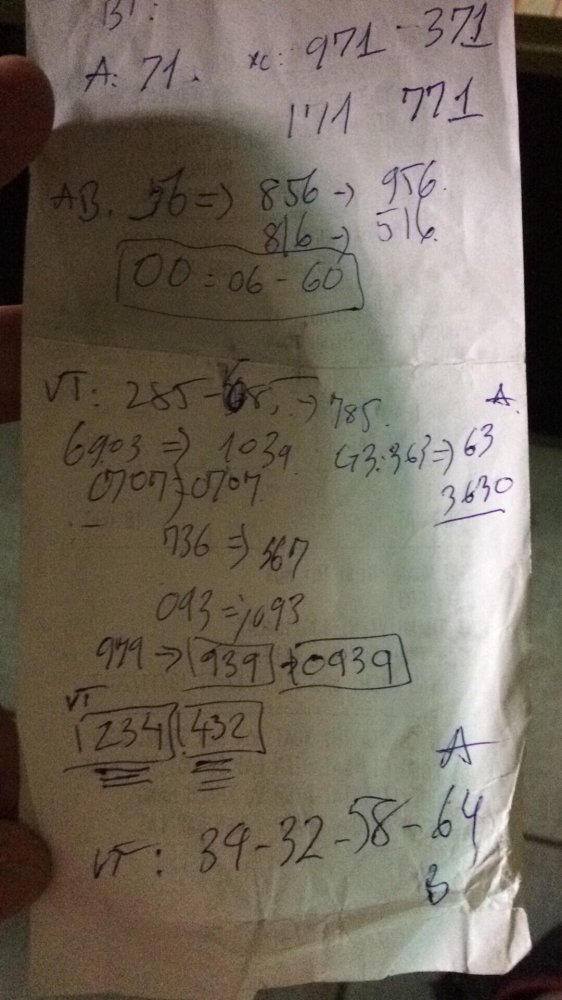 BT:
A: 71. xc: 971 - 371
171 771
AB. 56 => 856 -> 956.
816 -> 516.
00 = 06 - 60
VT: 285 - -> 785.
A.
6903 => 1039 G3: 363 => 63
0707 => 0707 3630
736 => 567
093 => 093
979 => 939 -> 0939
VT
1234 432
A
VT: 34 - 32 - 58 - 64
B